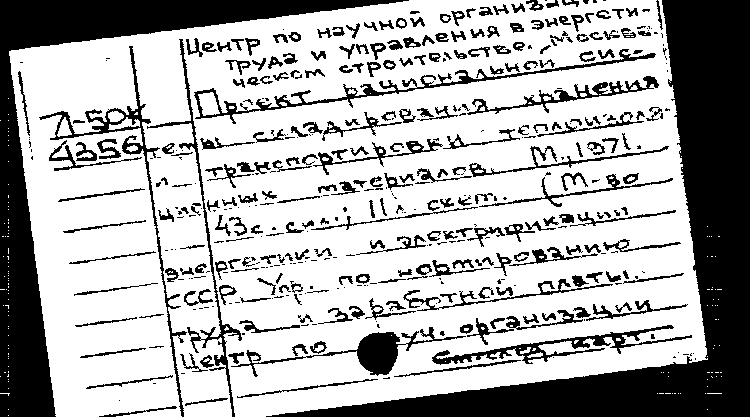 Центр по научной организации
труда и управления в энергети-
ческом строительстве. Москва.
Проект рациональной сис-
Л-50К
4356
темы складирования, хранения
и транспортировки теплоизоля-
ционных материалов. М., 1971.
43с. с ил.; 11л. схем. (М-во
энергетики и электрификации
СССР. Упр. по нормированию
труда и заработной платы.
Центр по науч. организации
См. след. карт.